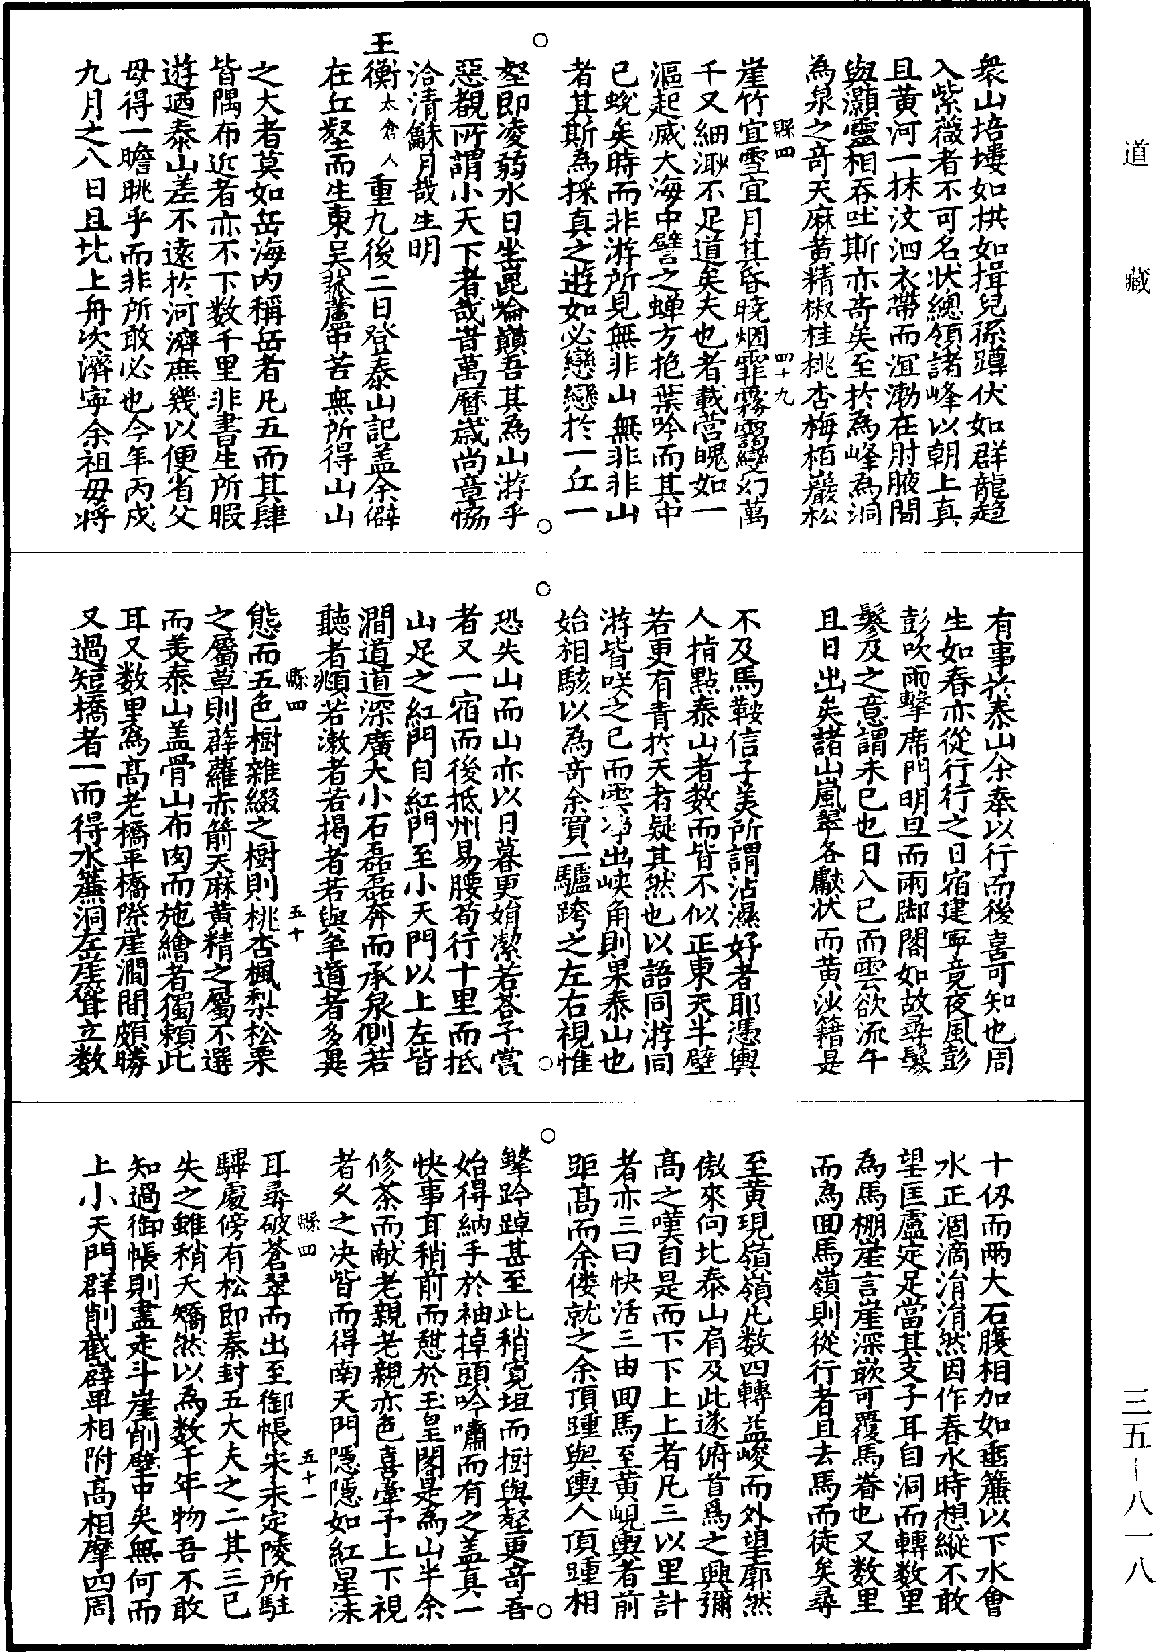 道藏
三五—八一八
衆山培塿如拱如揖兒孫蹲伏如群龍趨
入紫薇者不可名狀總領諸峰以朝上真
且黄河一抹汶泗衣帶而溟渤在肘腋間
與灝靈相吞吐斯亦奇矣至於為峰為洞
為泉之奇天麻黄精椒桂桃杏梅栢巖松
縣四
四十九
崖竹宜雪宜月其昏曉烟霏霧靄變幻萬
千又細渺不足道矣夫也者載営魄如一
漚起威大海中譬之蟬方抱葉吟而其中
已蛻矣時而非游所見無非山無非非山
者其斯為採真之遊如必戀戀於一丘一
壑即凌弱水日坐崑崙巔吾其為山游乎
惡覩所謂小天下者哉昔萬曆歲尚章恊
洽清龢月哉生明
王衡太倉人重九後二日登泰山記盖余僻
在丘壑而生東吴菰蘆中苦無所得山山
之大者莫如岳海内稱岳者凡五而其肆
皆隅布近者亦不下数千里非書生所暇
遊迺泰山差不遠於河濟庶幾以便省父
母得一瞻眺乎而非所敢必也今年丙戌
九月之八日且北上舟次濟寧余祖母將
有事於泰山余奉以行而後喜可知也周
生如春亦從行行之日宿建寧竟夜風彭
彭吹雨擊席門明旦而雨脚閣如故尋髮
鬖及之意謂未已也日八已而雲欲流午
且日出矣諸山嵐翠各獻状而黄沙籍是
不及馬鞍信子美所謂沾濕好者耶憑輿
人指點泰山者数而皆不似正東天半壁
若更有青於天者疑其然也以語同游同
游皆咲之已而雲净出峽角則果泰山也
始相駭以為奇余買一驢跨之左右視惟
恐失山而山亦以日暮更娟潔若荅予賞
者又一宿而後抵州易腰荀行十里而抵
山足之紅門自紅門至小天門以上左皆
澗道道深廣大小石磊磊奔而承泉側若
聽者頫若漱者若揭者若與争道者多異
縣四
五十
態而五色樹雜綴之樹則桃杏楓梨松栗
之屬草則薜蘿赤箭天麻黄精之屬不選
而羙泰山盖骨山布肉而施繪者獨頼此
耳又数里為高老橋平橋際崖澗間頗勝
又過短橋者一而得水簾洞左崖聳立数
十仭而兩大石腹相加如垂簾以下水會
水正涸滴涓涓然因作春水時想縱不敢
望匡盧定足當其支子耳自洞而轉数里
為馬棚崖言崖深嵌可覆馬眷也又数里
而為回馬嶺則從行者且去馬而徒矣尋
至黄現嶺嶺凡数四轉益峻而外望廓然
傲來向比泰山肩及此遂俯首為之興彌
高之嘆自是而下下上上者凡三以里計
者亦三曰快活三由回馬至黄峴輿者前
歫高而余僂就之余頂踵與輿人頂踵相
擊趻踔甚至此稍寛坦而樹與壑更奇吾
始得納手於袖掉頭吟嘯而有之盖真一
快事耳稍前而憇於玉皇閣是為山半余
修茶而献老親老親亦色喜牽予上下視
者乆之决眥而得南天門隱隱如紅星沬
縣四
五十一
耳尋破蒼翠而出至御帳宋永定陵所駐
驆處傍有松即秦封五大夫之二其三已
失之雖稍夭矯然以為数千年物吾不敢
知過御帳則盡走斗崖削壁中矣無何而
上小天門群削截辟单相附高相摩四周